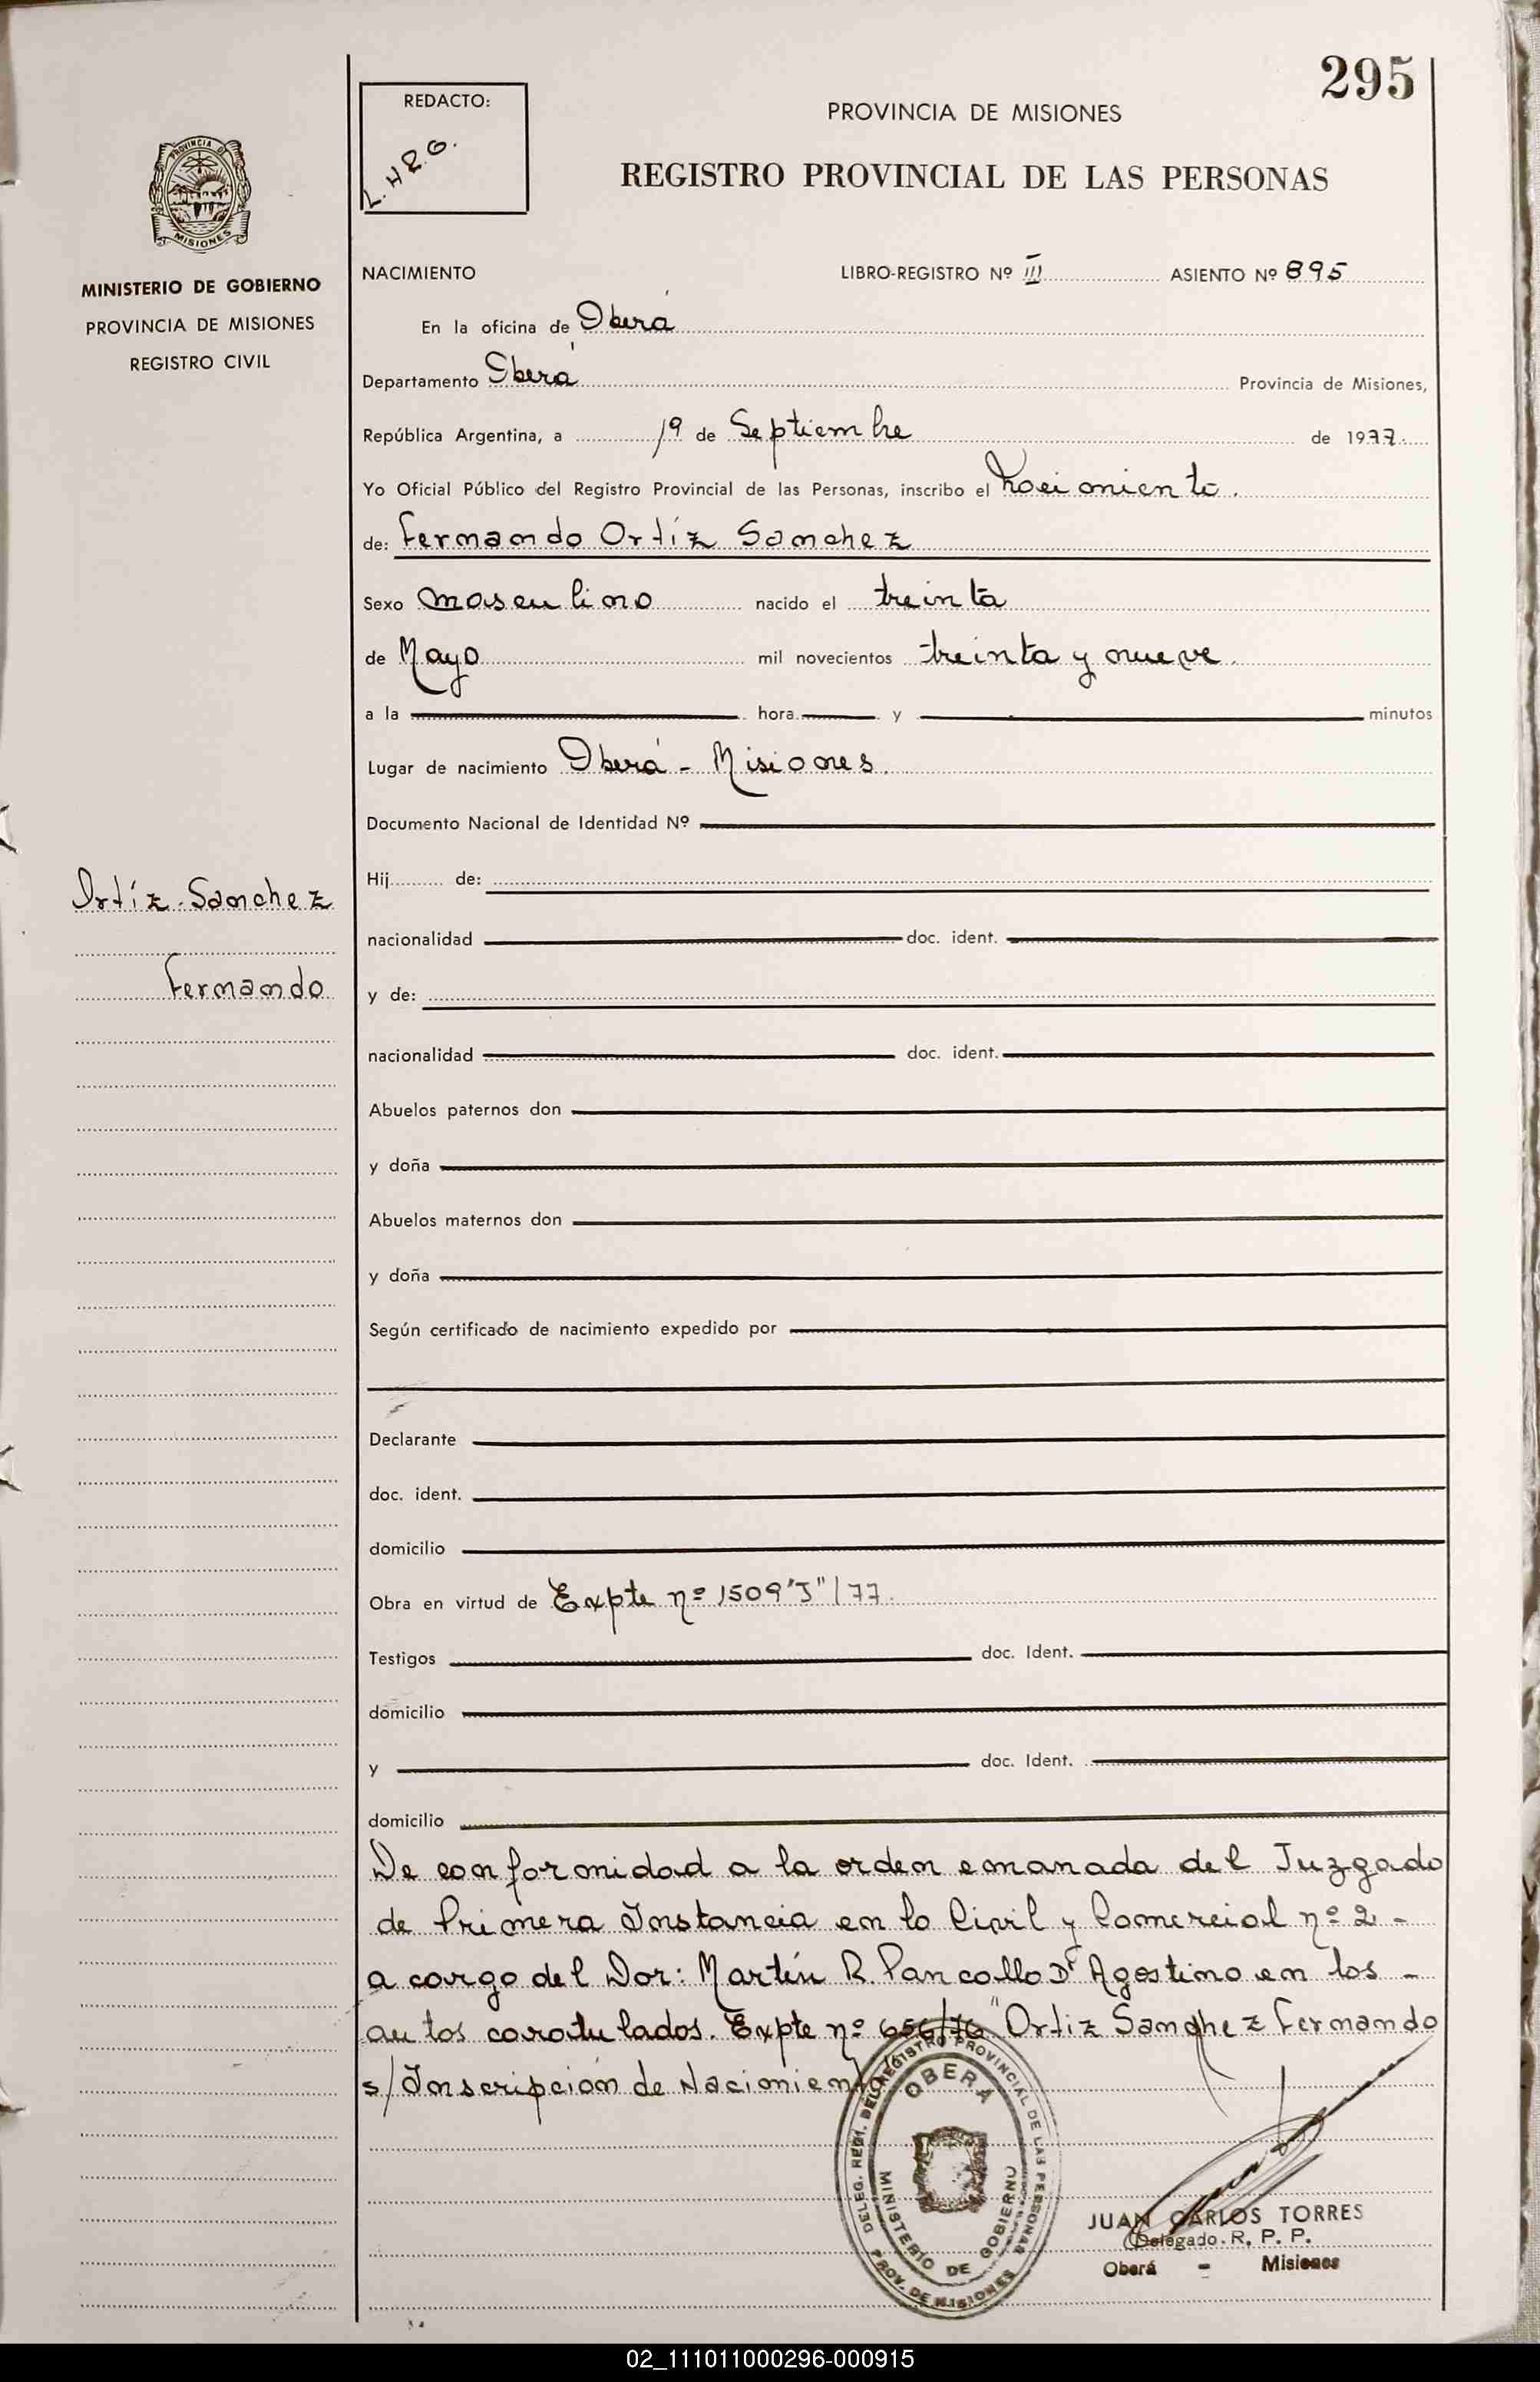 295
REDACTO:
L.H.R.G.
PROVINCIA DE MISIONES
REGISTRO PROVINCIAL DE LAS PERSONAS
PROVINCIA D
MISIONES
MINISTERIO DE GOBIERNO
PROVINCIA DE MISIONES
REGISTRO CIVIL
NACIMIENTO LIBRO-REGISTRO Nº III ASIENTO Nº 895
En la oficina de Oberá
Departamento Oberá Provincia de Misiones,
República Argentina, a 1º de Septiembre de 1977.
Yo Oficial Público del Registro Provincial de las Personas, inscribo el Nacimiento.
de: Fernando Ortíz Sanchez
Sexo masculino nacido el treinta
de Mayo mil novecientos treinta y nueve.
a la hora y minutos
Lugar de nacimiento Oberá - Misiones.
Documento Nacional de Identidad Nº
Hij de:
Ortíz Sanchez
Fernando
nacionalidad doc. ident.
y de:
nacionalidad doc. ident.
Abuelos paternos don
y doña
Abuelos maternos don
y doña
Según certificado de nacimiento expedido por
Declarante
doc. ident.
domicilio
Obra en virtud de Expte nº 1509"J"/77.
Testigos doc. Ident.
domicilio
y doc. Ident.
domicilio
De conformidad a la orden emanada del Juzgado
de Primera Instancia en lo Civil y Comercial nº 2 -
a cargo del Dor: Martín R. Pancallo D' Agostino en los -
autos caratulados. Expte nº 656/76 "Ortiz Sanchez Fernando
s/Inscripción de Nacimiento
DELEG. REGI. DEL REGISTRO PROVINCIAL DE LAS PERSONAS
OBERA
MINISTERIO DE GOBIERNO
PROV. DE MISIONES
JUAN CARLOS TORRES
Delegado R. P. P.
Oberá - Misiones
02_111011000296-000915